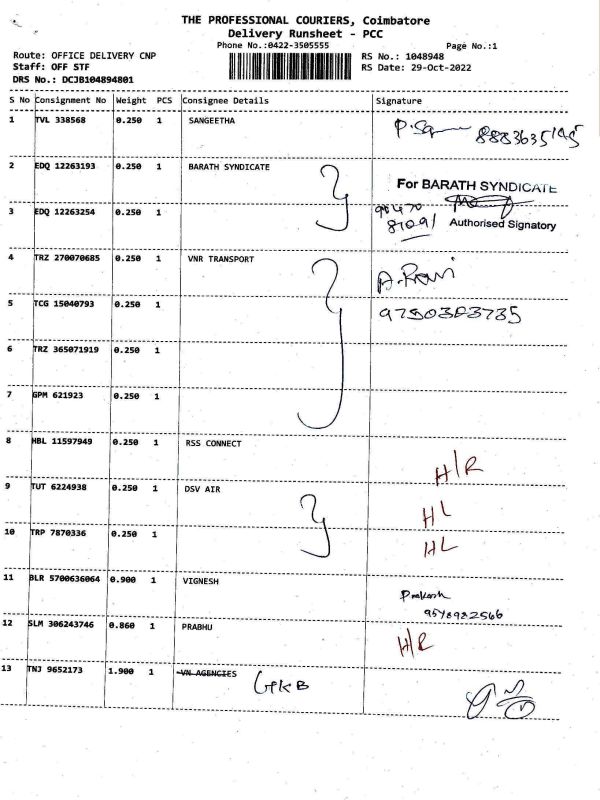 THE PROFESSIONAL COURIERS, Coimbatore
Delivery Runsheet - PCC
Phone No.:0422-3505555 Page No.:1
Route: OFFICE DELIVERY CNP RS No.: 1048948
Staff: OFF STF RS Date: 29-Oct-2022
DRS No.: DCJB104894801
S No Consignment No Weight PCS Consignee Details Signature
1 TVL 338568 0.250 1 SANGEETHA
2 EDQ 12263193 0.250 1 BARATH SYNDICATE For BARATH SYNDICATE
3 EDQ 12263254 0.250 1 Authorised Signatory
4 TRZ 270070685 0.250 1 VNR TRANSPORT A.Ravi
5 TCG 15040793 0.250 1
6 TRZ 365071919 0.250 1
7 GPM 621923 0.250 1
8 HBL 11597949 0.250 1 RSS CONNECT H/R
9 TUT 6224938 0.250 1 DSV AIR HL
10 TRP 7870336 0.250 1 HL
11 BLR 5700636064 0.900 1 VIGNESH Prakash
9578982566
12 SLM 306243746 0.860 1 PRABHU H/R
13 TNJ 9652173 1.900 1 VN AGENCIES GKB